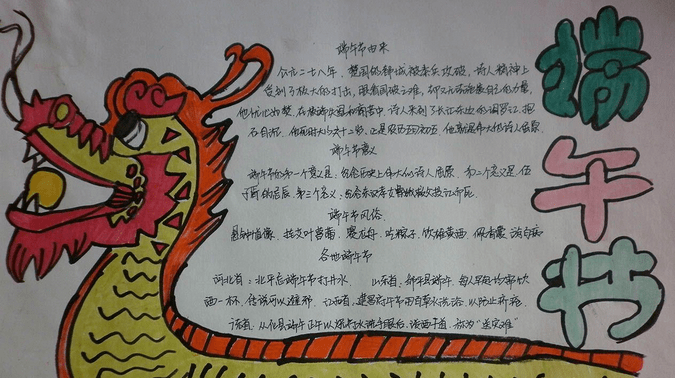 端午节
端午节由来
公元二十八年，楚国的都城被秦兵攻破，诗人精神上
受到了极大的打击，眼看国破之难，却又无法施展自己的力量，
他忧心如焚，在极端失望和痛苦中，诗人来到了长江东边的汨罗江，抱
石自沉，他当时大约六十二岁，正是农历五月初五，他就是伟大的诗人屈原
端午节意义
端午节的第一个意义是：纪念历史上伟大的诗人屈原。第二个意义是伍
子胥的忌辰。第三个意义：纪念东汉孝女曹娥救父投江而死。
端午节风俗
悬钟馗像，挂艾叶菖蒲，赛龙舟，吃粽子，饮雄黄酒，佩香囊，游百病
各地端午节
河北省：北平忌端午节打井水 山东省：邹平县端午，每人早起均需饮
酒一杯，传说可以避邪。江西省：建昌府端午节用百草水洗浴，以防止疥疮
广东省：从化县端午正午以烧符水洗手眼后，泼洒于道，称为“送灾难”